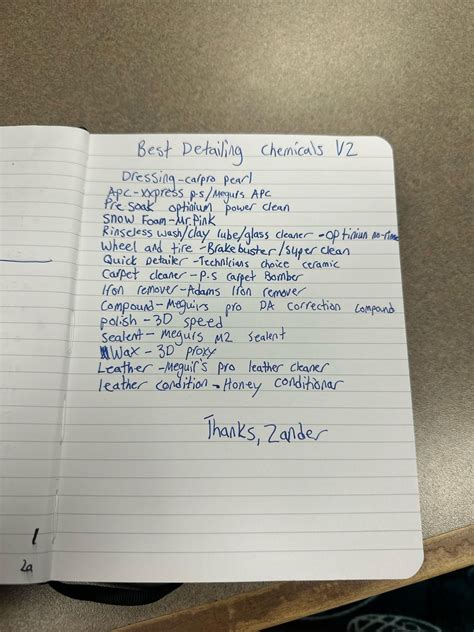 Best Detailing Chemicals V2
Dressing-carpro pearl
APC-xxpress p.s/Meguirs APC
Pre soak optinium power clean
Snow Foam-Mr.Pink
Rinseless wash/clay lube/glass cleaner-optinium no-rinse
Wheel and tire-Brakebuster/super clean
Quick Detailer-Technicians choice ceramic
Carpet cleaner-P.S carpet Bomber
Iron remover-Adams Iron remover
Compound-Meguirs pro DA correction compound
polish-3D speed
Sealent-Megurs M2 sealent
Wax-3D proxy
Leather-Meguir's pro leather cleaner
leather condition-Honey conditionar
Thanks, Zander
1
2a